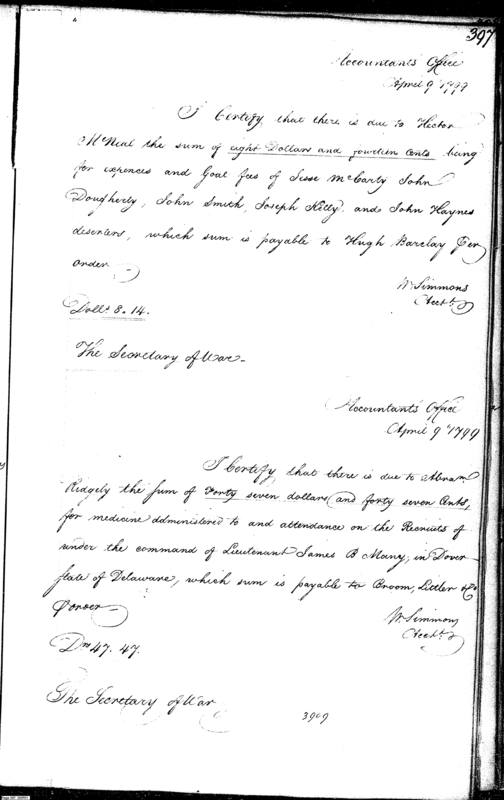 397
Accountants Office
April 9th 1799
I Certify that there is due to Hector
McNeal the sum of eight Dollars and fourteen Cents being
for expences and Goal fees of Jesse McCarty John
Dougherty, John Smith, Joseph Kelly, and John Haynes
deserters, which sum is payable to Hugh Barclay Per
order
Wm Simmons
Acct
Dolls 8.14.
The Secretary of War
Accountants Office
April 9th 1799
I Certify that there is due to Abram
Ridgely the sum of Forty seven dollars and forty seven Cents,
for medicine administered to and attendance on the Recruits of
under the command of Lieutenant James B Many, in Dover
State of Delaware, which sum is payable to Broom, Littler & Co
P order
Wm Simmons
Acct
Drs 47.47.
The Secretary of War
3909